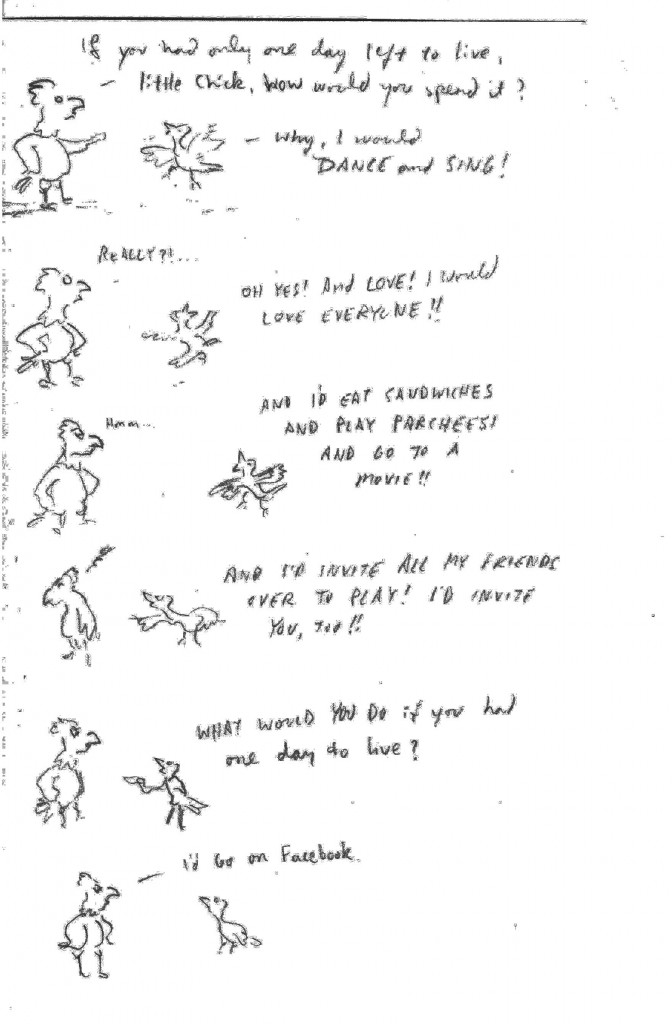 If you had only one day left to live,
little Chick, how would you spend it?
Why, I would
DANCE and SING!
REALLY?!...
OH YES! And LOVE! I would
LOVE EVERYONE!!
Hmm...
AND I'D EAT SANDWICHES
AND PLAY PARCHEESI
AND GO TO A
MOVIE!!
AND I'D INVITE ALL MY FRIENDS
OVER TO PLAY! I'D INVITE
YOU, TOO!!
WHAT WOULD YOU DO if you had
one day to live?
I'd Go on Facebook.